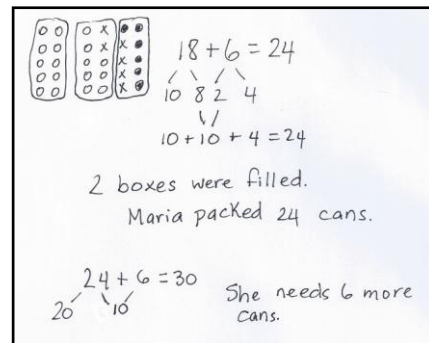 18 + 6 = 24
10 8 2 4
10 + 10 + 4 = 24
2 boxes were filled.
Maria packed 24 cans.
24 + 6 = 30
20 10
She needs 6 more
cans.